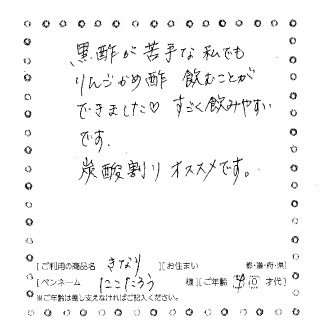 黒酢が苦手な私でも
りんごかめ酢 飲むことが
できました♡ すごく飲みやすい
です.
炭酸割り オススメです。
[ご利用の商品名 きなり ][お住まい 都・道・府・県]
[ペンネーム にこたろう 様][ご年齢 40 才代]
※ご年齢は差し支えなければご記入ください。